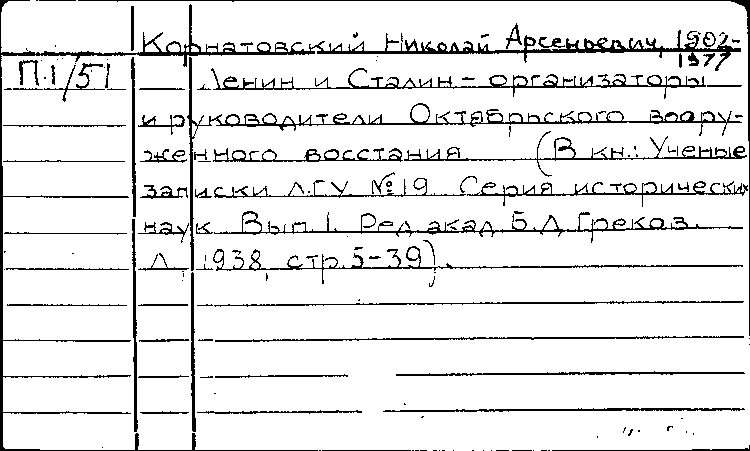 Корнатовский Николай Арсеньевич, 1902-
1977
П.1/51 Ленин и Сталин - организаторы
и руководители Октябрьского воору-
женного восстания (В кн.: Ученые
записки ЛГУ №19 Серия исторических
наук Вып.1. Ред акад Б.Д Греков.
Л 1938, стр.5-39).